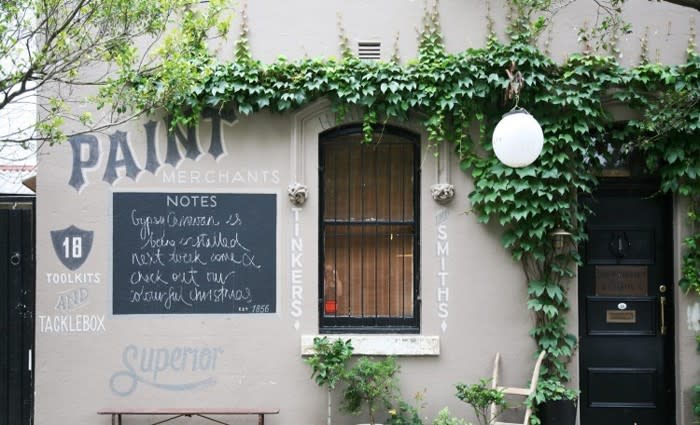 PAINT
MERCHANTS
NOTES
Gypsy Caravan is
being installed
next week come &
check out our
colourful christmas
EST 1856
18
TOOLKITS
AND
TACKLEBOX
Superior
TINKERS
AND
SMITHS